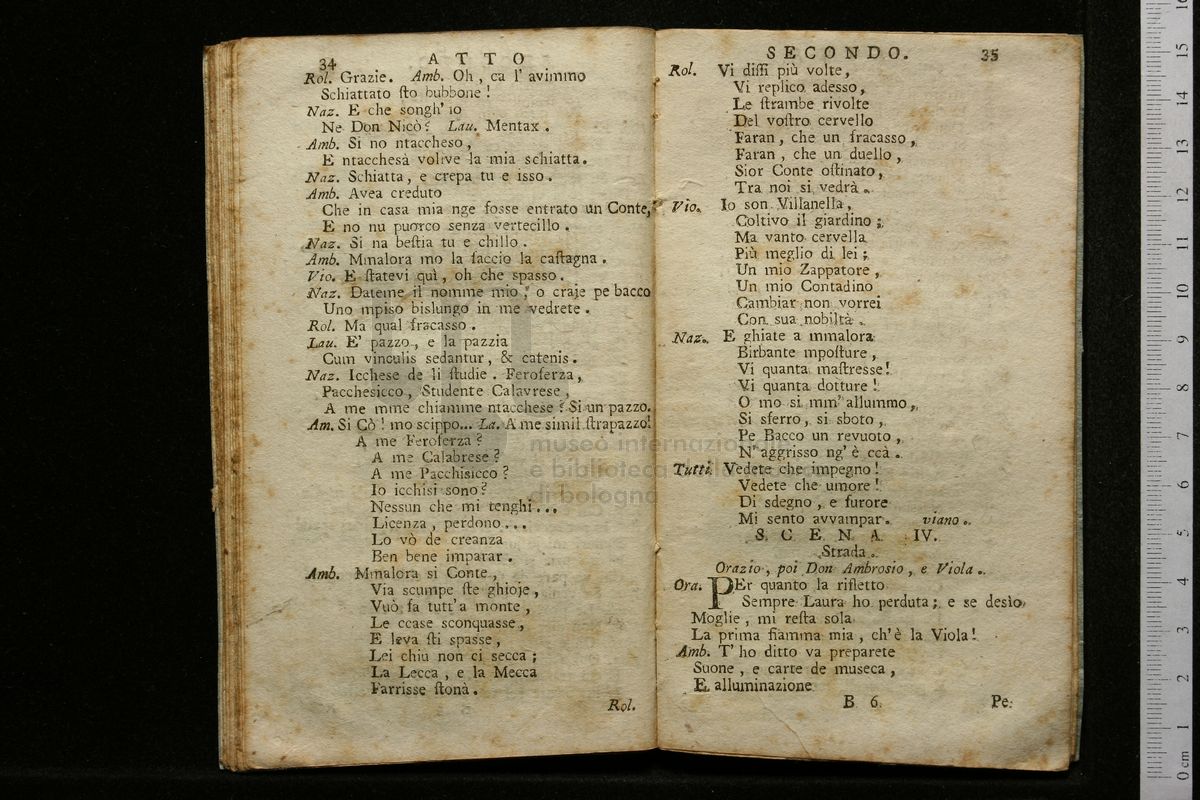 34 ATTO
Rol. Grazie. Amb. Oh, ca l' avimmo
Schiattato ſto bubbone!
Naz. E che songh' io
Ne Don Nicò? Lau. Mentax.
Amb. Si no ntaccheso,
E ntacchesà volive la mia schiatta.
Naz. Schiatta, e crepa tu e isso.
Amb. Avea creduto
Che in casa mia nge fosse entrato un Conte,
E no nu puorco senza vertecillo.
Naz. Si na beſtia tu e chillo.
Amb. Mmalora mo la faccio la caſtagna.
Vio. E ſtatevi quì, oh che spasso.
Naz. Dateme il nomme mio, o craje pe bacco
Uno mpiso bislungo in me vedrete.
Rol. Ma qual fracasso.
Lau. E' pazzo, e la pazzia
Cum vinculis sedantur, & catenis.
Naz. Icchese de li ſtudie. Feroferza,
Pacchesicco, Studente Calavrese,
A me mme chiamme ntacchese? Si un pazzo.
Am. Si Cò! mo scippo... La. A me simil ſtrapazzo!
A me Feroferza?
A me Calabrese?
A me Pacchisicco?
Io icchisi sono?
Nessun che mi tenghi...
Licenza, perdono...
Lo vò de creanza
Ben bene imparar.
Amb. Mmalora si Conte,
Via scumpe ſte ghioje,
Vuò fa tutt'a monte,
Le ccase sconquasse,
E leva ſti spasse,
Lei chiu non ci secca;
La Lecca, e la Mecca
Farrisse ſtonà.
Rol.
SECONDO. 35
Rol. Vi diſſi più volte,
Vi replico adesso,
Le ſtrambe rivolte
Del voſtro cervello
Faran, che un fracasso,
Faran, che un duello,
Sior Conte oſtinato,
Tra noi si vedrà.
Vio. Io son Villanella,
Coltivo il giardino;
Ma vanto cervella
Più meglio di lei;
Un mio Zappatore,
Un mio Contadino
Cambiar non vorrei
Con sua nobiltà.
Naz. E ghiate a mmalora
Birbante mpoſture,
Vi quanta maſtresse!
Vi quanta dotture!
O mo si mm' allummo,
Si sferro, si sboto,
Pe Bacco un revuoto,
N' aggrisso ng' è ccà.
Tutti. Vedete che impegno!
Vedete che umore!
Di sdegno, e furore
Mi sento avvampar. viano.
SCENA IV.
Strada.
Orazio, poi Don Ambrosio, e Viola.
Ora. PEr quanto la rifletto
Sempre Laura ho perduta; e se desìo
Moglie, mi reſta sola
La prima fiamma mia, ch' è la Viola!
Amb. T' ho ditto va preparete
Suone, e carte de museca,
E alluminazione
B 6 Pe:
museo internazionale
e biblioteca
di bologna
0 cm 1 2 3 4 5 6 7 8 9 10 11 12 13 14 15 16